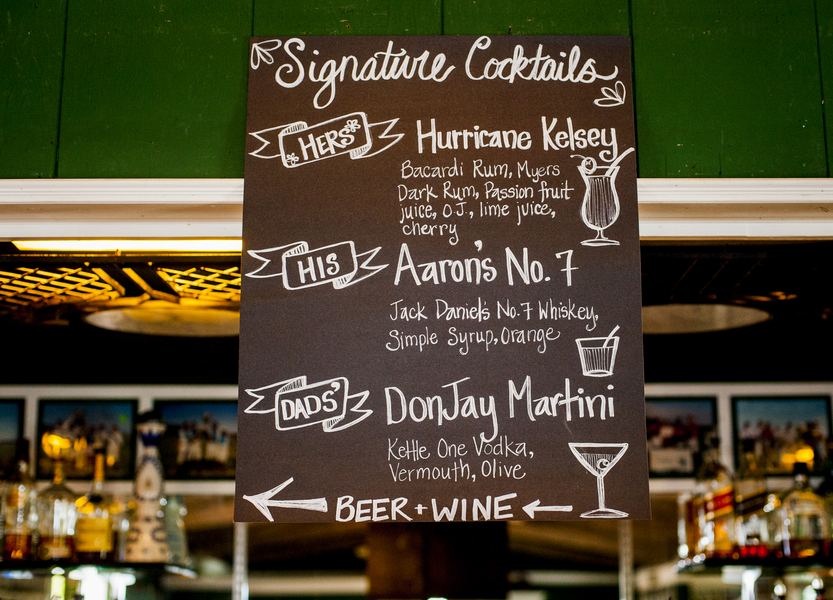 Signature Cocktails
HERS
Hurricane Kelsey
Bacardi Rum, Myers
Dark Rum, Passion fruit
juice, O.J., lime juice,
cherry
HIS
Aaron's No. 7
Jack Daniel's No. 7 Whiskey,
Simple Syrup, Orange
DADS'
DonJay Martini
Kettle One Vodka,
Vermouth, Olive
BEER + WINE